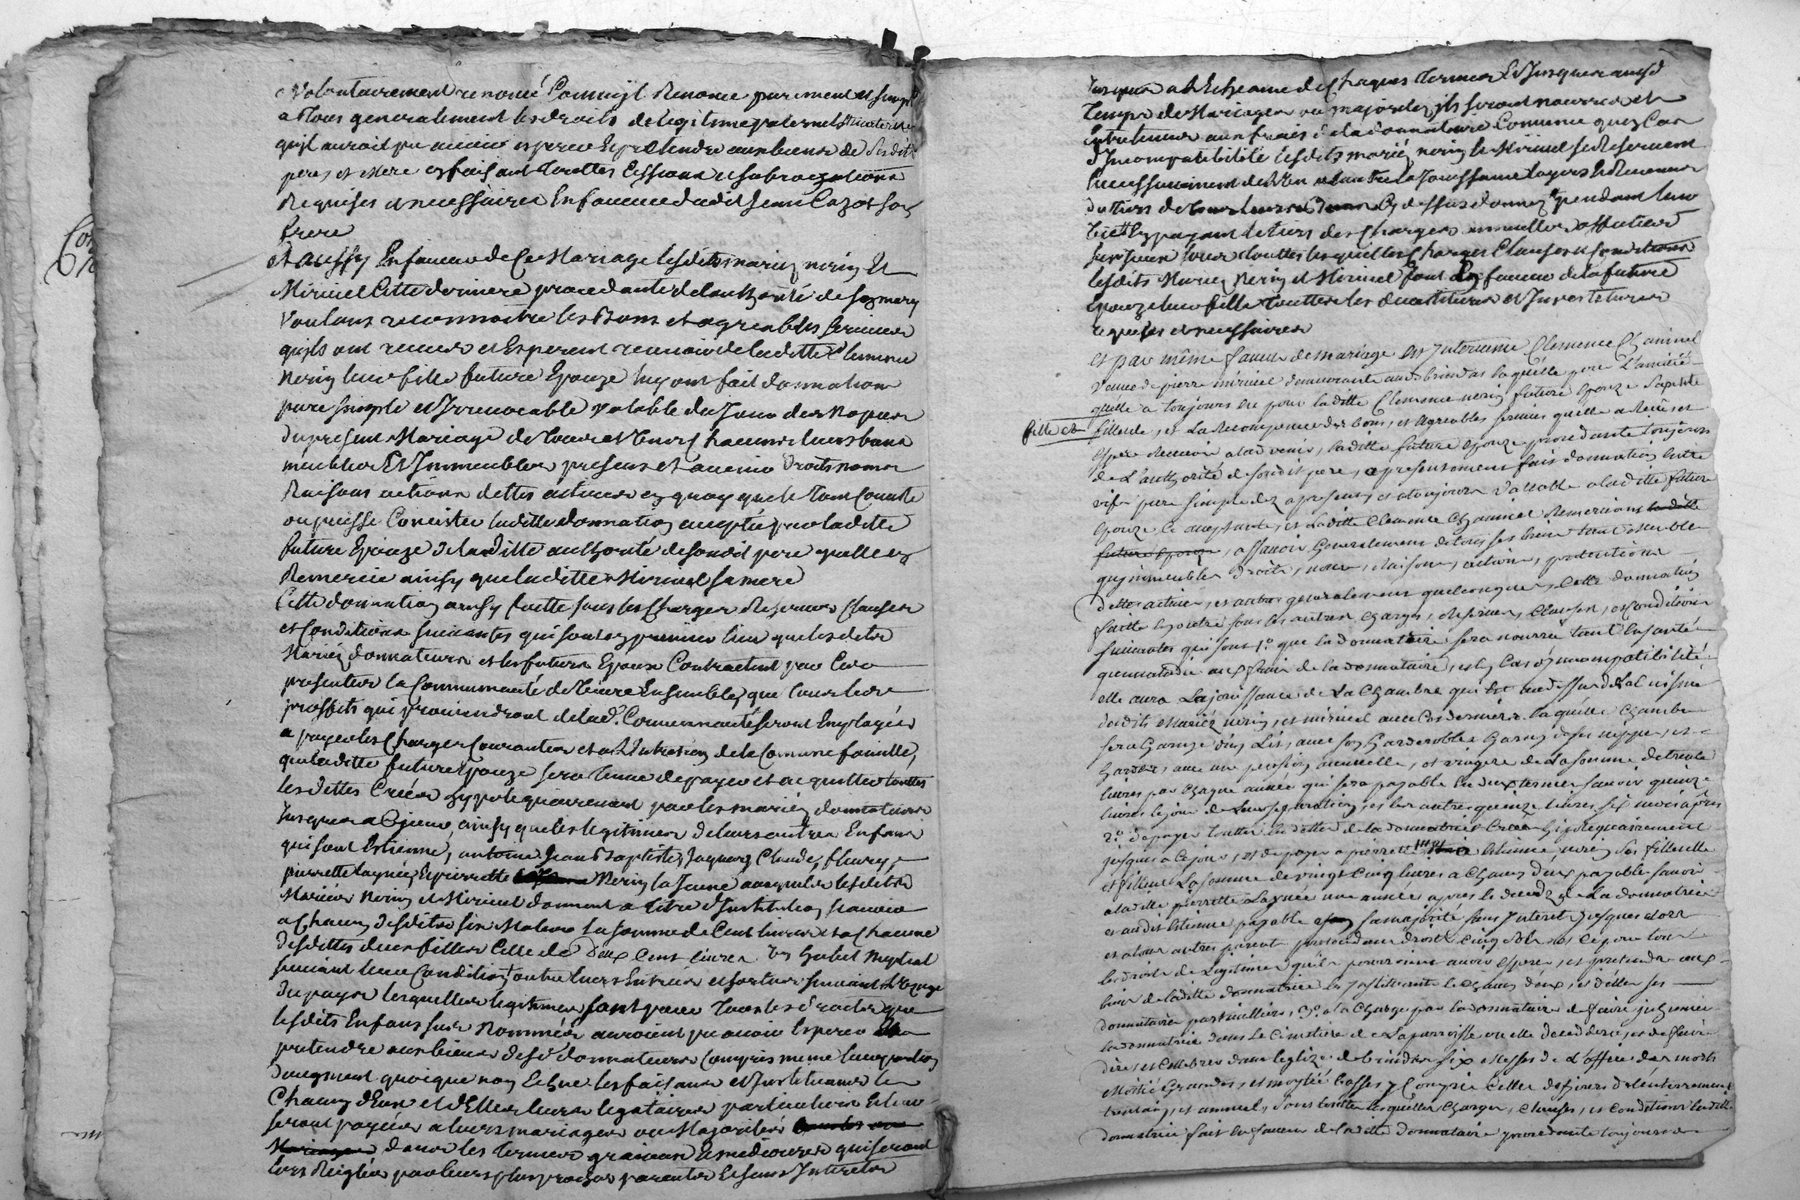 volontairement renoncé comm'il renonce purement et simpl
a tous generalement les droits de legitime paternels maternel
qu'il auroit pu avoir esperer et pretendre aux biens de sesdits
peres et mere en faisant touttes cessions et subrogations
requises et necessaires en faveur dudit Jean Cazot son
frere
et aussy en faveur de ce mariage lesdits mariez neriy et
Miriuel cette derniere procedante de l'authorité de son mary
voulans reconnoitre les bons et agreables services
qu'ils ont receus et esperent recevoir de laditte Clemence
neriy leur fille future epouze luy ont fait donnation
pure simple et irrevocable valable du jour des nopces
du present mariage de tous et uns chacuns leurs biens
meubles et immeubles presens et avenir droits noms
raisons actions dettes actives en quoy que le tout consiste
ou puisse consister laditte donnation acceptée par laditte
future epouze de laditte authorité de sondit pere qu'elle en
remercie ainsy que laditte Miriuel sa mere
Cette donnation ainsy faitte sous les charges reserves clauses
et conditions suivantes qui sont en premier lieu que lesdits
mariez donnateurs et les futurs epoux contractent par ces
presentes la communauté de vivre ensemble, que tous les
proffits qui proviendront de lad. communauté seront employés
a payer les charges courantes et a l'entretien de la comune famille,
que laditte future epouze sera tenue de payer et acquitter touttes
les dettes creées hypotequairement par les mariez donnateurs
jusques a ce jour, ainsy que les legitimes de leurs autres enfans
qui sont Estienne, antoine Jean Baptiste, Jaques, Claude, fleury,
pierrette l'aynée, et pierrette neriy la jeune ausquels lesdits
mariés neriy et Miriuel donnent a titre d'institution
a chacun desdits six males la somme de cent livres et a chacune
desdittes deux filles celle de deux cent livres un habit nuptial
suivant leur condition outre leurs entrées et sorties suivant l'usage
du pays lesquelles legitimes sont pour tous les droits que
lesdits enfans sus nommés auroient pu avoir esperer
pretendre aux biens desd. donnateurs compris meme leur portion
d'augment quoique non echue les faisans et instituans le
chacun d'eux et d'elles leurs legataires particuliers et leur
seront payées a leurs mariages ou majorités
dans les termes qui seront
lors reiglés par leurs plus proches parents et sans interets
jusques a l'echeance de chaques termes et jusques auxd
temps de mariages ou majorités ils seront nourris et
entretenus aux frais de la donnataire comune qu'en cas
d'incompatibilité lesdits mariez neriy et Miriuel se reservent
du tiers de cy dessus donnez pendant leur
vie en payant le tiers des charges annuelles affectées
sur iceux sous touttes lesquelles charges clauses et conditions
lesdits mariez neriy et Miriuel font en faveur de la future
epouze leur fille touttes les devestitures et investitures
requises et necessaires
et par même faveur de mariage est intervenüe Clemence Chaninel
veuve de pierre miriuel demeurante audit brindas laquelle pour l'amitié
quelle a toujours eu pour laditte Clemence neriy future epouze sa petite
fille et
filleule, et la recompence des bons, et agreables services quelle a receus et
espere recevoir a ladvenir, laditte future epouze procedante toujours
de l'authorité de sondit pere, a presentement fait donnation entre
vifs pure simple dez apresent et atoujours vallable a laditte future
epouze ce acceptante, et laditte Clemence Chaninel remerciant laditte
future epouze, assavoir generalement de tous ses biens tant meubles
qu'immeubles droits, noms, raisons, actions, pretentions
dettes actives, et autres generalement quelconques, cette donnation
faitte en outre sous les autres charges, reserves, clauses, et conditions
suivantes qui sont 1.o que la donnatrice sera nourrie tant en santé
que maladie aux frais de la donnataire, et en cas d'incompatibilité
elle aura la jouissance de la chambre qui est au dessus de la cuisine
desdits mariez neriy, et miriuel laquelle chambre
sera garnye d'un lit, avec son garderobbe garny de ses nippes, et
hardes, avec une pension annuelle, et viagere de la somme de trente
livres par chaque année qui sera payable en deux termes savoir quinze
livres le jour de leur separation et les autres quinze livres six mois apres
2.o de payer touttes les dettes de la donnatrice creées hipotequairement
jusques a ce jour, et de payer a pierrette et a etienne neriy ses filleulle
et filleul la somme de vingt cinq livres a chacun d'eux payable savoir
a laditte pierrette l'aynée une année apres le decedz de la donnatrice
et audit etienne payable a sa majorité sans interet jusques alors
et a tous autres pretendans droits cinq sols et ce pour tous
les droits de legitimes qu'ils pourroient avoir esperer, et pretendre aux
biens de laditte donnatrice les instituante le chacun d'eux, et d'elles ses
donnataires particuliers, 3.o a la charge par la donnataire de faire inhumer
la donnatrice dans le cimetière de la parroisse ou elle decedera, et de faire
dire, et celebrer dans l'eglize de brindas six messes de l'office des morts
moitié grandes, et moytié basses y compris celles des jours de l'enterrement
trentain, et annuel, sous touttes lesquelles charges, clauses, et conditions laditte
donnatrice fait en faveur de laditte donnataire procedante toujours